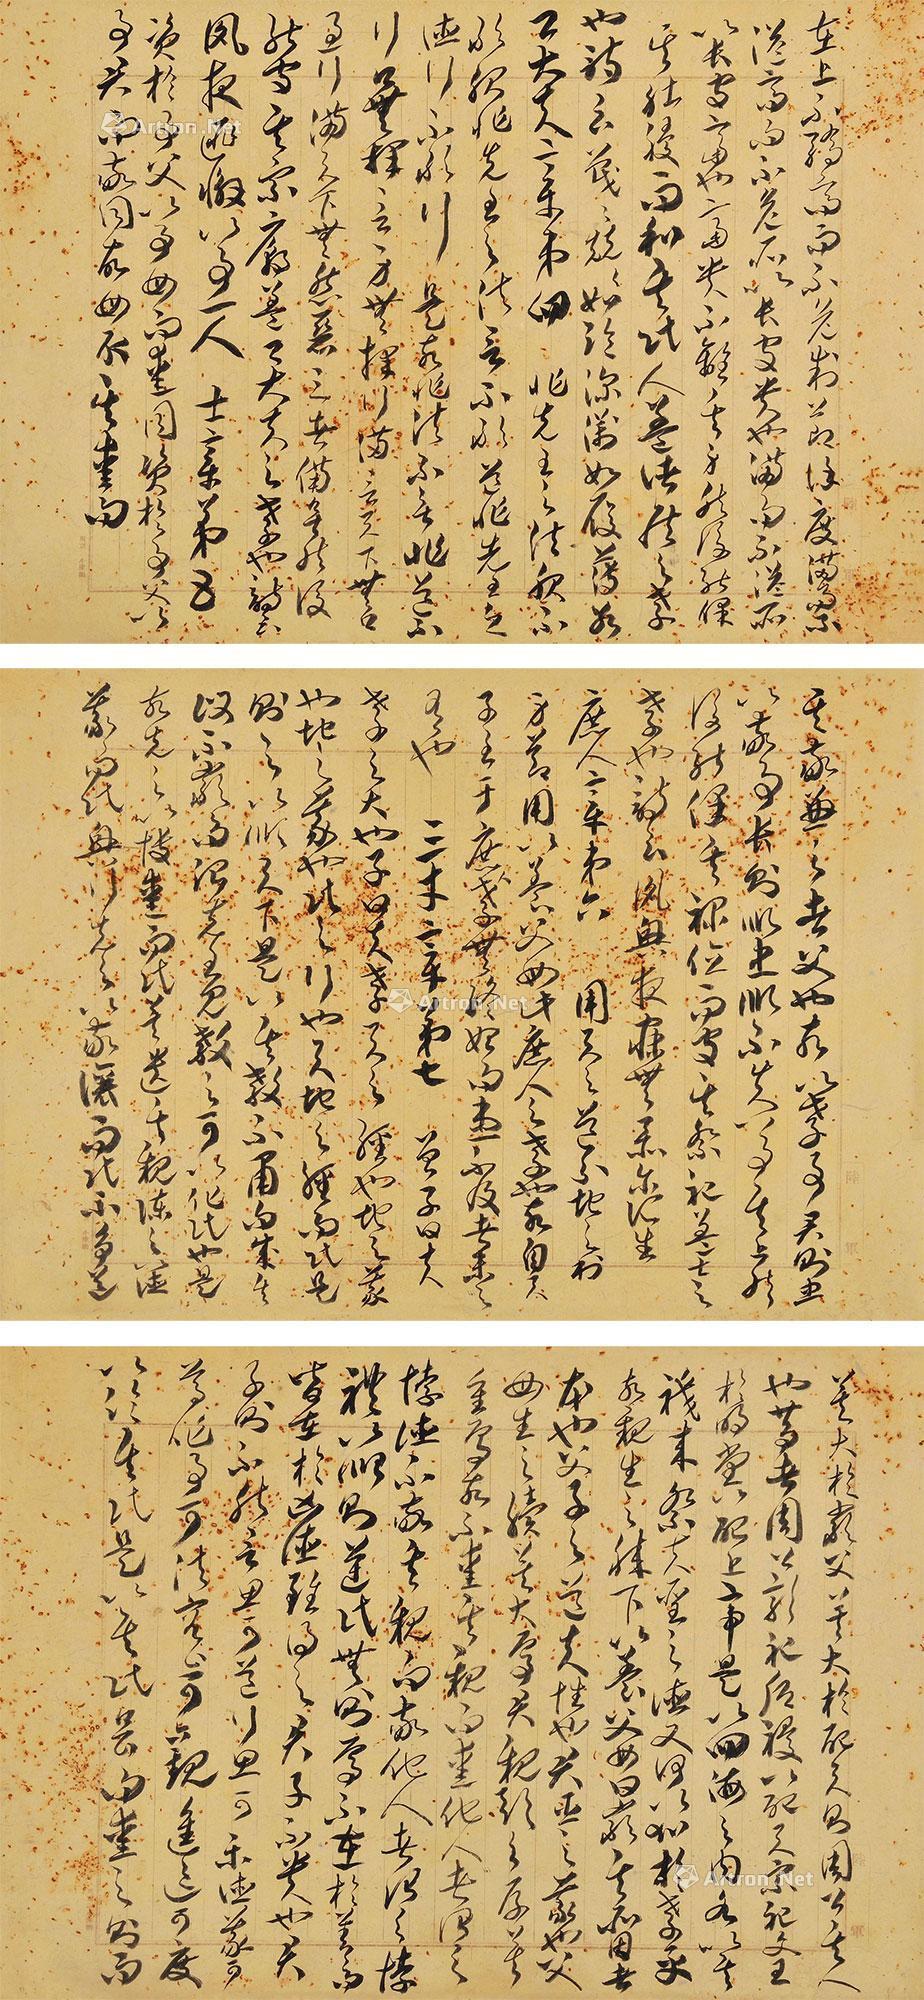 在上不驕高而不危制節謹度滿而不
溢高而不危所以長守貴也滿而不溢所
以長守富也富貴不離其身然後能保
其社稷而和其民人蓋諸侯之孝
也詩云戰々兢々如臨深淵如履薄冰
卿大夫章第四 非先王之法服不
敢服非先王之法言不敢道非先王之
德行不敢行是故非法不言非道不
行口無擇言身無擇行滿言天下無口
過行滿天下無怨惡三者備矣然後
能守其宗廟蓋卿大夫之孝也詩云
夙夜匪懈以事一人 士章第五
資於事父以事母而愛同資於事父以
事君而敬同故母取其愛而
其敬兼之者父也故以孝事君則忠
以敬事長則順忠順不失以事其上然
後能保其祿位而守其祭祀蓋士之
孝也詩云夙興夜寐無忝尔所生
庶人章第六 用天之道分地之利
身節用以養父母此庶人之孝也故自天
子至于庶人孝無終始而患不及者未之
有也 三才章第七 曾子曰甚
孝之大也子曰夫孝天之經也地之義
也民之行也天地之經而民是
則之以順天下是以其教不肅而成其
政不嚴而治先王見教之可以化民也是
故先之以博愛而民莫遺其親陳之以德
義而民興行先之以敬讓而民不爭道
莫大於嚴父莫大於配天則周公其人
也昔者周公郊祀后稷以配天宗祀文王
於明堂以配上帝是以四海之內各以其
職來祭夫聖人之德又何以加於孝乎
故親生之膝下以養父母日嚴
本也父子之道天性也君臣之義也父
母生之續莫大焉君親臨之厚莫
重焉故不愛其親而愛他人者謂之
悖德不敬其親而敬他人者謂之悖
禮以順則逆民無則焉不在於善而
皆在於凶德雖得之君子不貴也君
子則不然言思可道行思可樂德義可
尊作事可法容止可觀進退可度
以臨其民是以其民畏而愛之則而